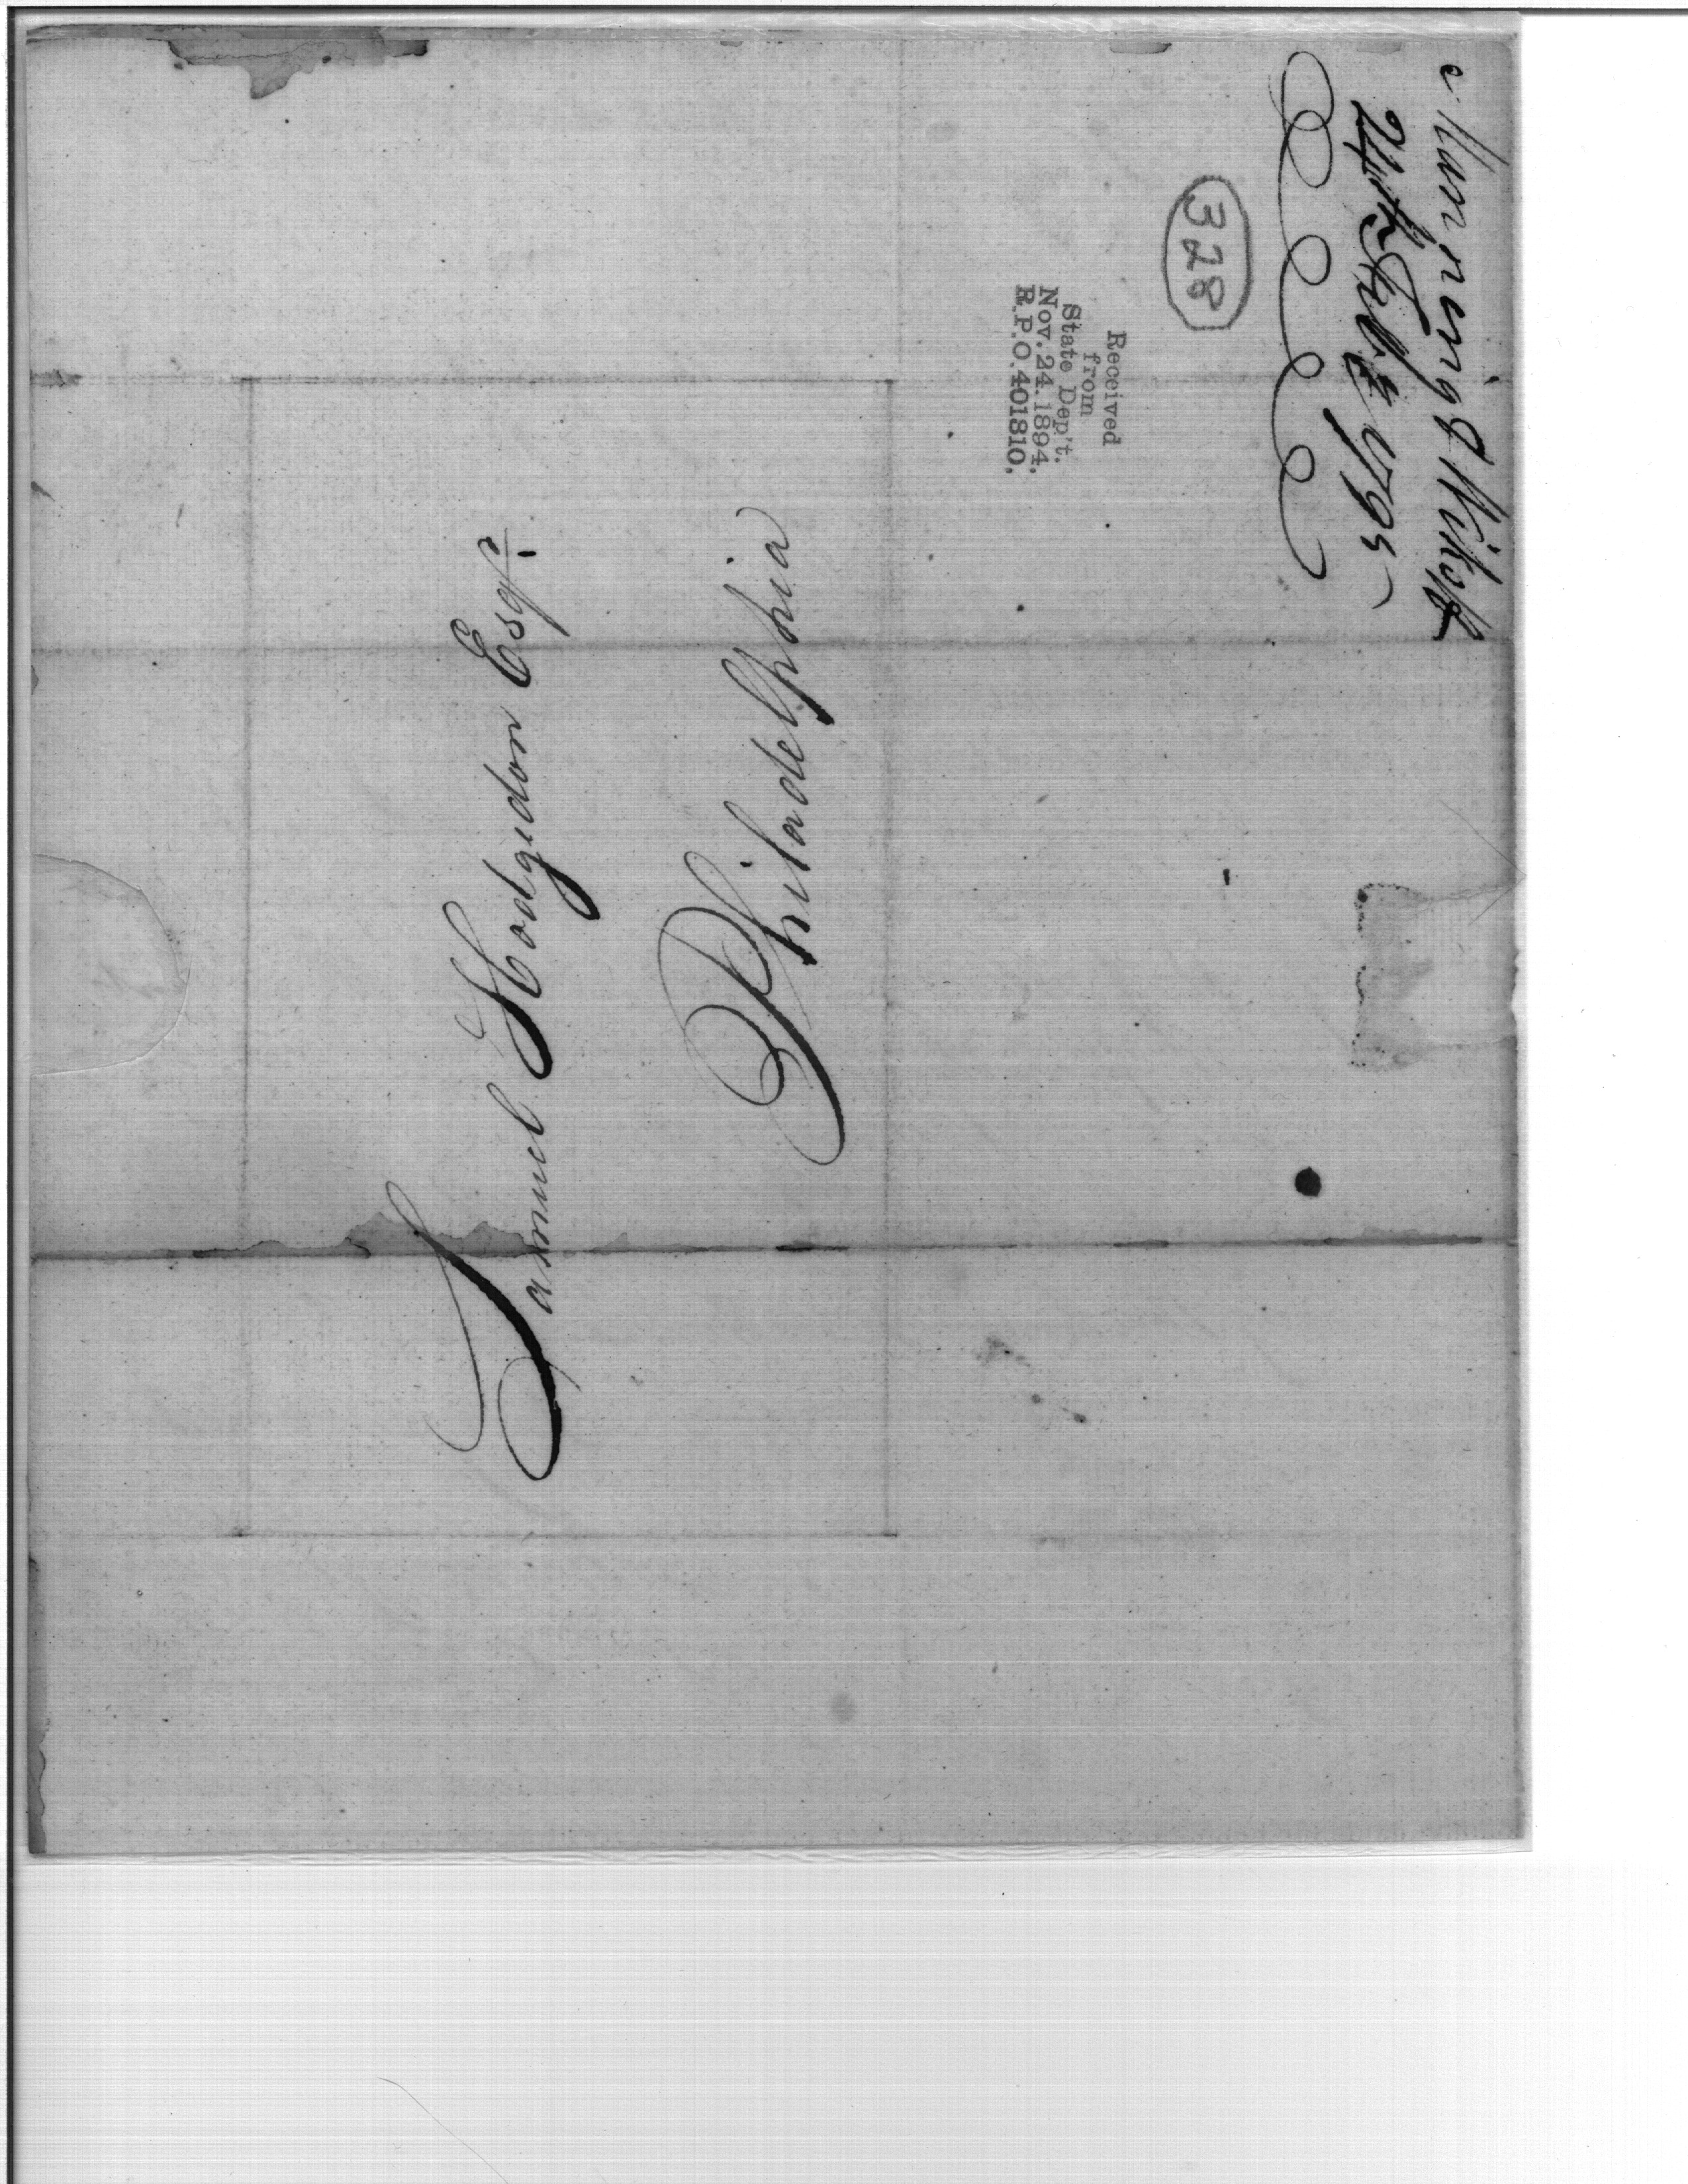 Manning & Wikoff
24th Feby 1795
328
Received
from
State Dep't.
Nov. 24. 1894.
R.P.O. 401810.
Samuel Hodgdon Esqr.
Philadelphia